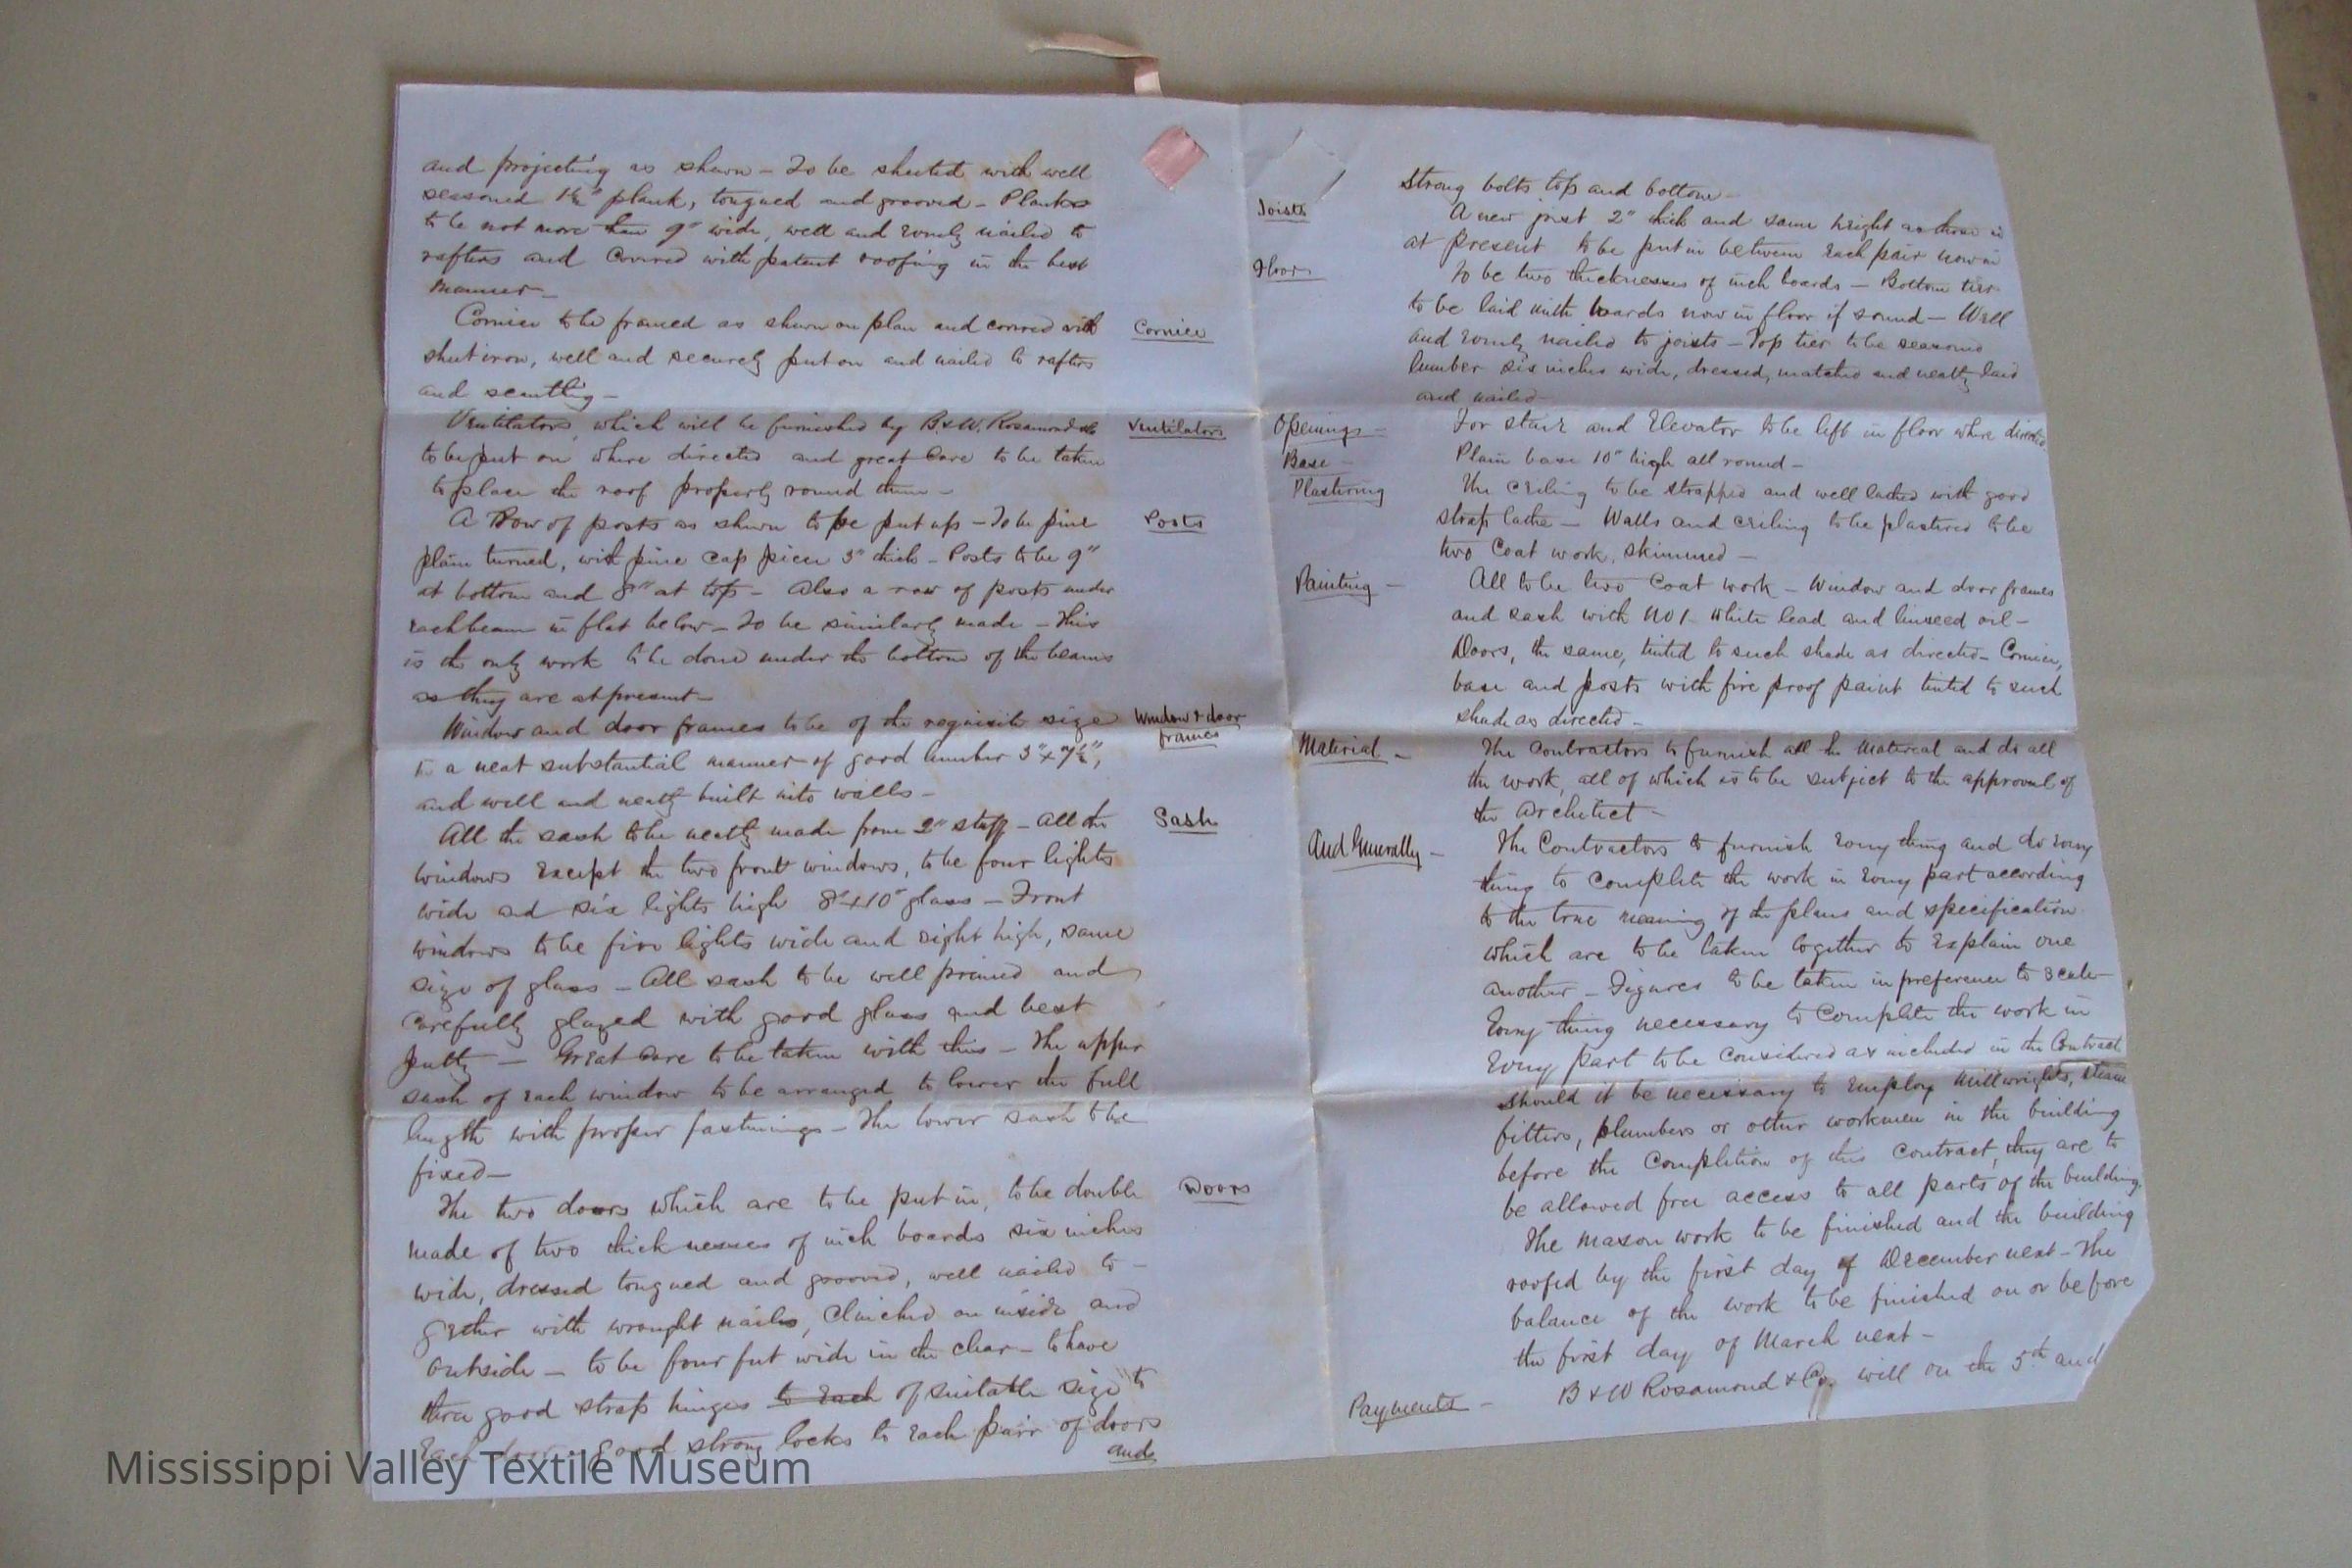 and projecting as shown – To be sheeted with well
seasoned 1½" plank, tongued and grooved – Planks
to be not more than 9" wide, well and evenly nailed to
rafters and Covered with patent roofing in the best
manner –
Cornice to be framed as shown on plan and covered with
Cornice
sheet iron, well and securely put on and nailed to rafters
and scantling –
Ventilators, which will be furnished by B.&W. Rosamond &Co
Ventilators
to be put on where directed and great Care to be taken
to place the roof properly round them –
A Row of posts as shown to be put up – To be pine
Posts
plain turned, with pine cap pieces 3" thick – Posts to be 9"
at bottom and 8" at top – Also a row of posts under
each beam in flat below – To be similarly made – This
is the only work to be done under the bottom of the beams
as they are at present –
Window and door frames to be of the requisite size
Window & door
frames
in a neat substantial manner of good lumber 3" x 7½",
and well and neatly built into walls –
All the sash to be neatly made from 2" stuff – All the
Sash
windows Except the two front windows, to be four lights
wide and six lights high 8" x 10" glass – Front
windows to be five lights wide and eight high, same
size of glass – All sash to be well primed and
Carefully glazed with good glass and best
putty – Great Care to be taken with this – The upper
sash of each window to be arranged to lower the full
length with proper fastenings – The lower sash to be
fixed –
The two doors which are to be put in, to be double
Doors
made of two thicknesses of inch boards six inches
wide, dressed tongued and grooved, well nailed to –
gether with wrought nails, Clinched on inside and
outside – to be four feet wide in the clear – to have
three good strap hinges to Each of suitable size to
Each door – good strong locks to Each pair of doors
and
strong bolts top and bottom –
Joists
A new joist 2" thick and same height as those in
at present to be put in between Each pair now in
Floor
To be two thicknesses of inch boards – Bottom tier
to be laid with boards now in floor if sound – Well
and evenly nailed to joists – Top tier to be seasoned
lumber six inches wide, dressed, matched and neatly laid
and nailed –
Openings –
For stair and Elevator to be left in floor where directed
Base –
Plain base 10" high all round –
Plastering
The Ceiling to be strapped and well lathed with good
strap laths – Walls and Ceiling to be plastered to be
two Coat work, skimmed –
Painting –
All to be two Coat work – Window and door frames
and sash with No 1 white lead and linseed oil –
Doors, the same, tinted to such shade as directed – Cornice,
base and posts with fire proof paint tinted to such
shade as directed –
Material –
The Contractors to furnish all the Material and do all
the work, all of which is to be subject to the approval of
the Architect –
And Generally –
The Contractors to furnish Every thing and do Every
thing to Complete the work in Every part according
to the true meaning of the plans and specification
which are to be taken together to Explain one
another – Figures to be taken in preference to scale
Every thing necessary to Complete the work in
Every part to be Considered as included in the Contract
should it be necessary to Employ Millwrights, steam
fitters, plumbers or other workmen in the building
before the Completion of this Contract, they are to
be allowed free access to all parts of the building.
The mason work to be finished and the building
roofed by the first day of December next – The
balance of the work to be finished on or before
the first day of March next –
Payments –
B & W Rosamond & Co. will on the 5th and
Mississippi Valley Textile Museum